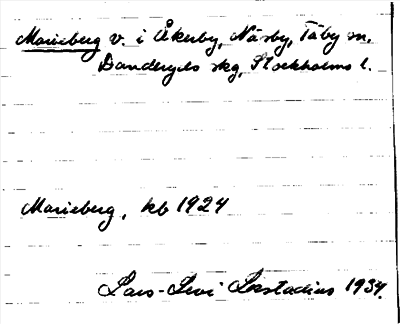 Marieberg v. i Åkerby, Näsby, Täby sn.
Danderyds skg, Stockholms l.
Marieberg, kb 1924
Lars-Levi Læstadius 1934.